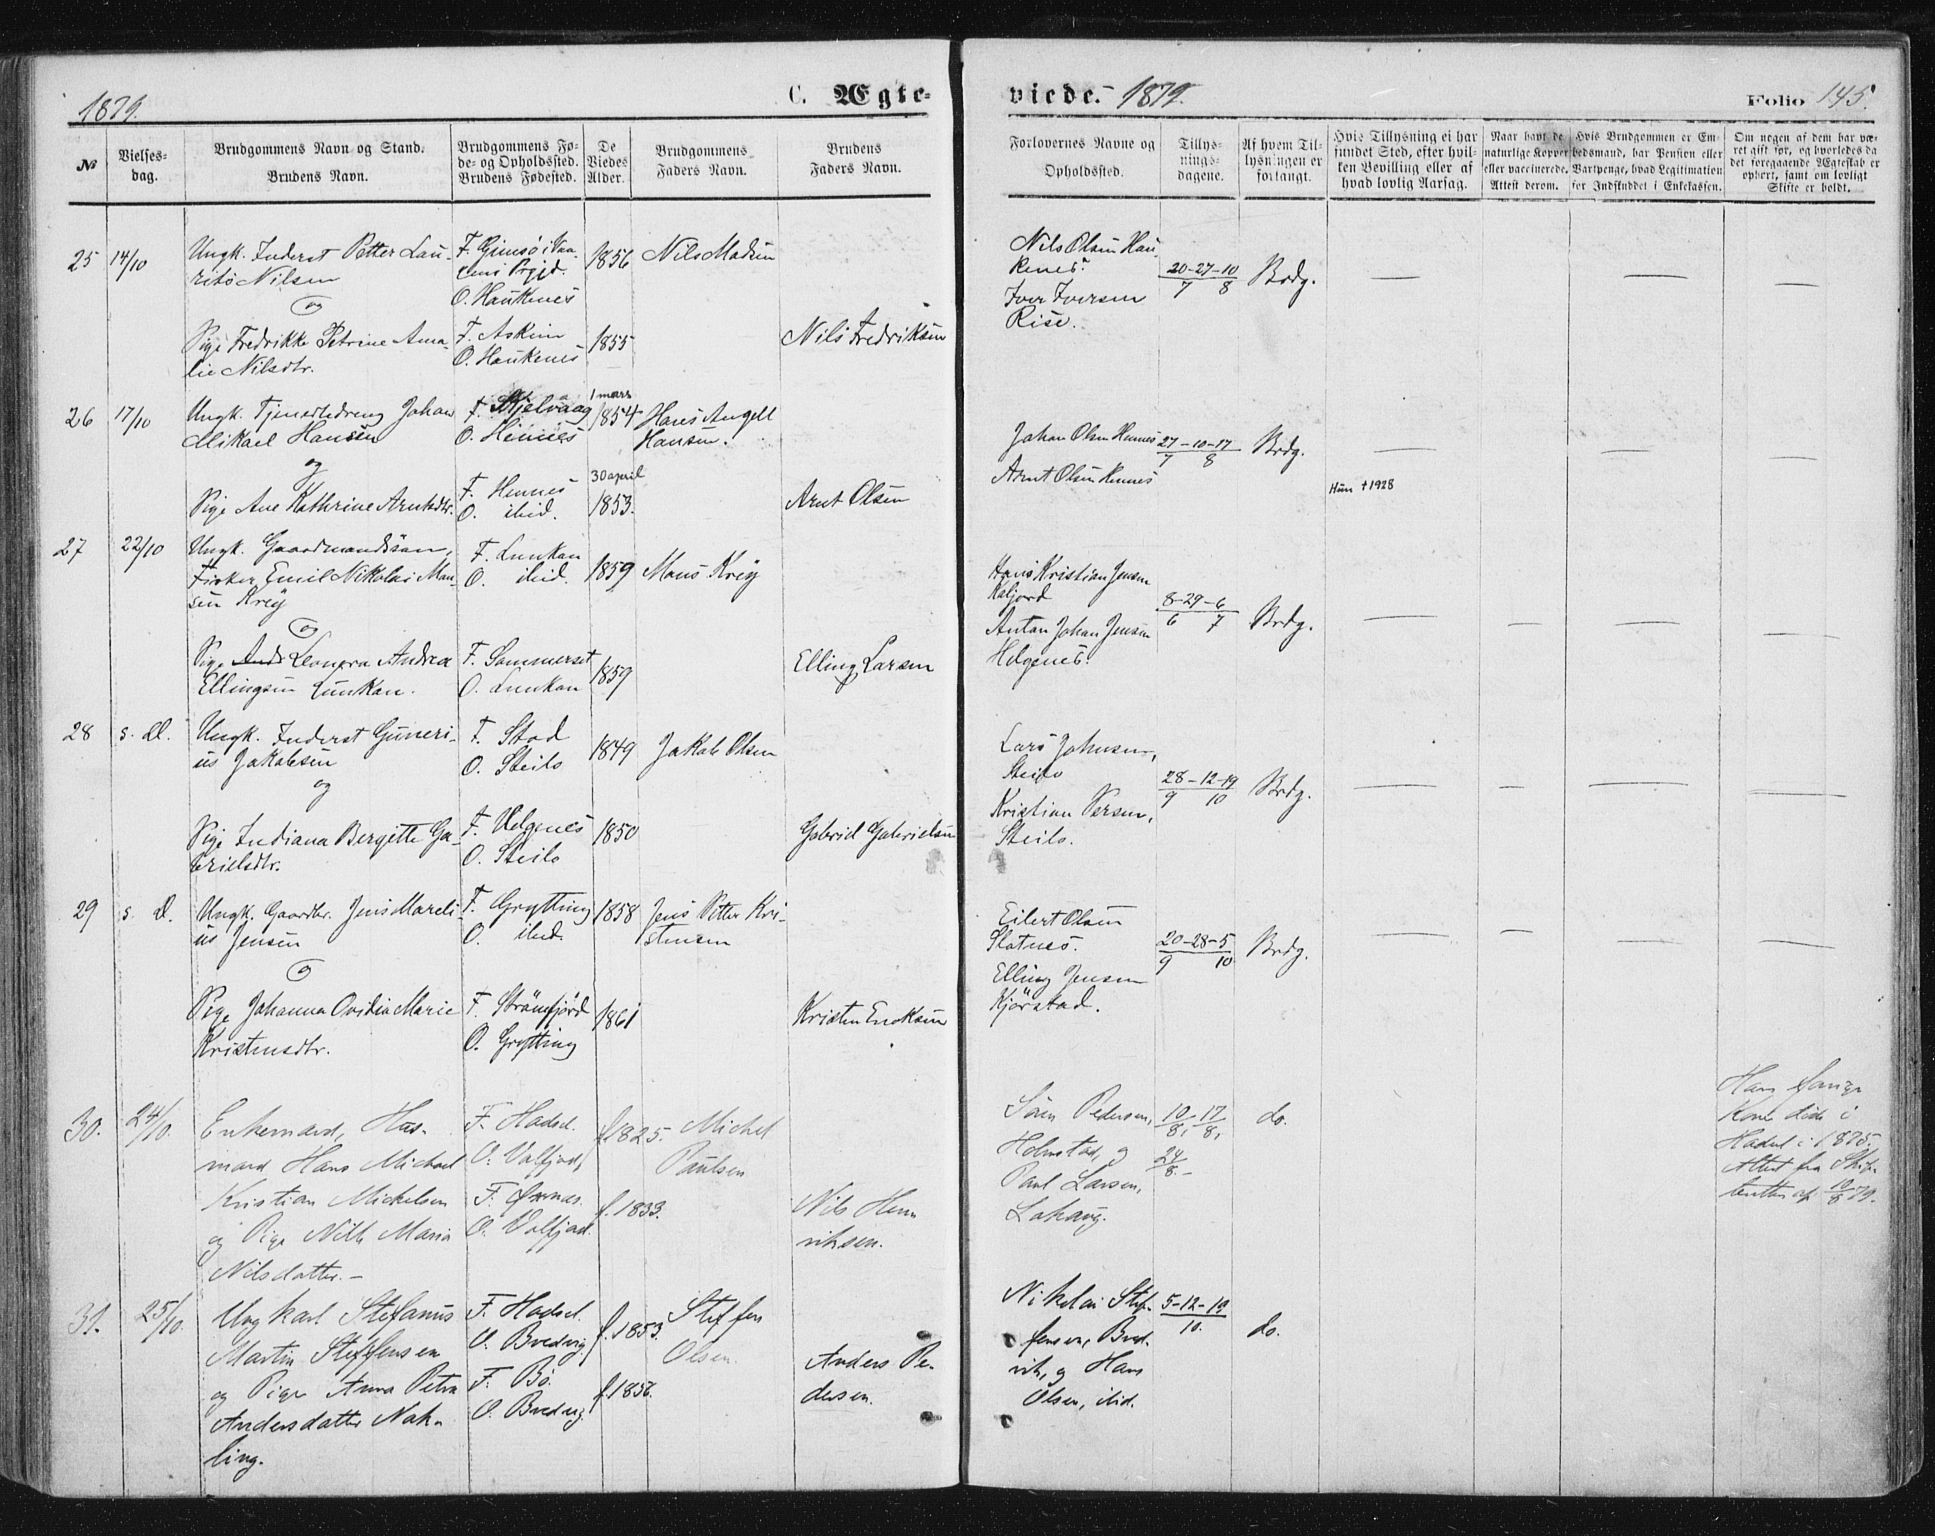 1879.
C. Ægte-
viede. 1879.
Folio 145.
No
Vielses-
dag.
Brudgommens Navn og Stand.
Brudens Navn.
Brudgommens Fø-
de- og Opholdssted.
Brudens Fødested.
De
Viedes
Alder.
Brudgommens
Faders Navn.
Brudens
Faders Navn.
Forlovernes Navne og
Opholdssted.
Tillys-
nings-
dagene.
Af hvem Til-
lysningen er
forlangt.
Hvis Tillysning ei har
fundet Sted, efter hvil-
ken Bevilling eller af
hvad lovlig Aarsag.
Naar havt de
naturlige Kopper
eller vaccinerede.
Attest derom.
Hvis Brudgommen er Em-
bedsmand, har Pension eller
Vartpenge, hvad Legitimation
for Indskuddet i Enkekassen.
Om nogen af dem har væ-
ret gift før, og hvorledes da
det foregaaende Ægteskab er
ophørt, samt om lovligt
Skifte er holdt.
25 14/10 Ungk. Inderst Petter Lau-
rits Nilsen
og
Pige Fredrikke Petrine Ama-
lie Nilsdtr.
F. Gimsö i Vaa-
gens Prgjd.
O. Haukenes
F. Askim
O. Haukenes
1856
1855
Nils Madsen
Nils Fredriksen
Nils Olsen Hau-
kenes
Iver Iversen
Rise.
20-27-10
7 8
Brdg.
26 17/10 Ungk. Tjenestedreng Johan
Mikael Hansen
og
Pige Ane Kathrine Arntsdtr.
F. Kjelvaag
O. Hennes
F. Hennes
O. ibid.
1 mars
1854
30 april
1853.
Hans Angell
Hansen.
Arnt Olsen
Johan Olsen Hennes
Arnt Olsen Hennes
27-10-17
7 8
Brdg.
Hun † 1928
27 22/10 Ungk. Gaardmandssøn,
Fisker Emil Nikolai Man-
sen Krey
og
Pige Leonora Andrea
Ellingsen Lunkan.
F. Lunkan
O. ibid.
F. Sommerset
O. Lunkan
1859
1859
Mons Krey
Elling Larsen
Hans Kristian Jensen
Kaljord
Antan Johan Jensen
Helgenes.
8-29-6
6 7
Brdg.
28 s. D. Ungk. Inderst Guneri-
us Jakobsen
og
Pige Indiana Bergitte Ga-
brielsdtr.
F. Stod
O. Steilo
F. Helgenes
O. Steilo
1849
1850
Jakob Olsen
Gabriel Gabrielsen
Lars Johnsen,
Steilo
Kristian Persen,
Steilo.
28-12-19
9 10
Brdg.
29 s. D. Ungk. Gaardbr. Jens Mareli-
us Jensen
og
Pige Johanna Ovidia Marie
Kristensdtr.
F. Grytting
O. ibid.
F. Strömfjord
O. Grytting
1858
1861
Jens Petter Kri-
stensen
Kristen Enoksen
Eilert Olsen
Slotnes.
Elling Jensen
Kjörstad.
20-28-5
9 10
Brdg.
30. 24/10. Enkemand, Hus-
mand Hans Michael
Kristian Mickelsen
og Pige Nille Maria
Nilsdatter.—
F. Hadsel.
O. Valfjord,
F. Öxnes.
O. Valfjord.
f. 1825.
f. 1833.
Michel
Paulsen
Nils Hen-
riksen.
Sören Pedersen,
Holmstad, og
Paul Larsen,
10/8, 17/8,
24/8.-
do.
Hans forrige
Kone døde i
Hadsel i 1875.
Attest fra Skif-
teretten af 19/8 79.
31. 25/10. Ungkarl Stefanus
Martin Steffensen
og Pige Anna Petra
Andersdatter Nøk-
ling.
F. Hadsel.
O. Bredvig.
F. Bö.
O. Bredvig.
f. 1853.
f. 1856.
Steffen
Olsen.
Anders Pe-
dersen.
Nikolai Stef-
fensen, Bred-
vik, og Hans
Olsen, ibid.
5-12-19
10.
do.